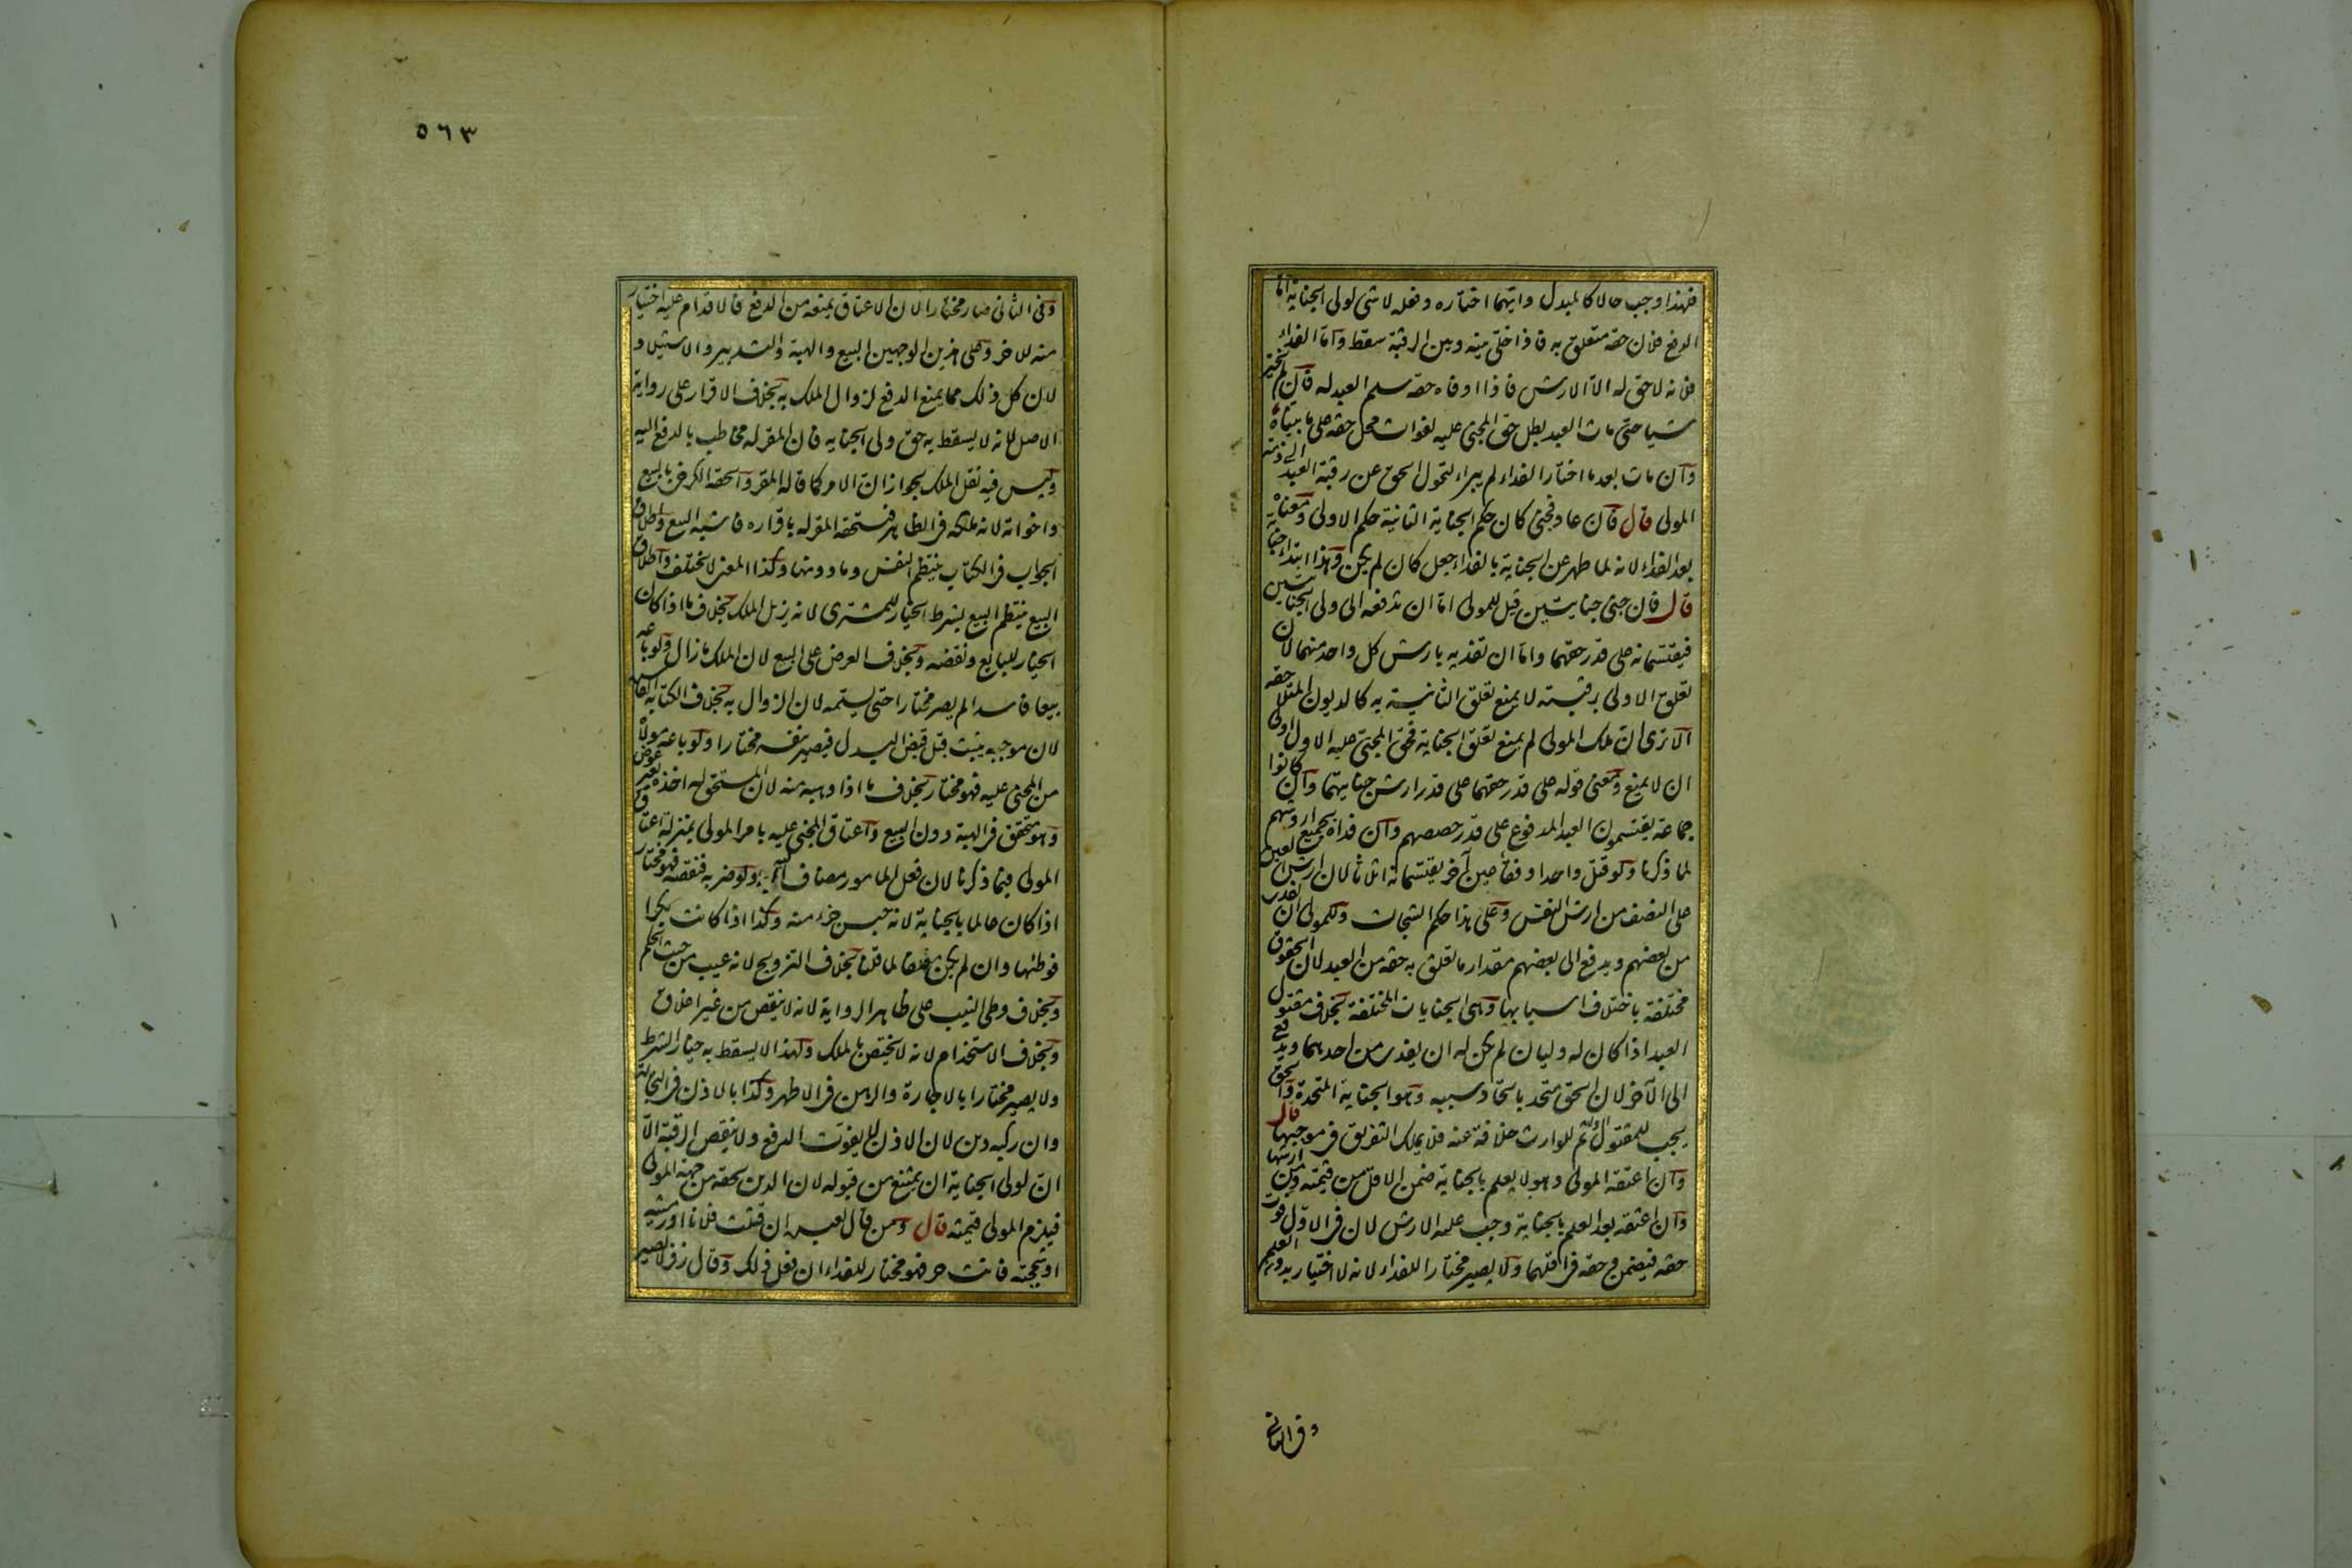 فلهذا وجب حالا كالمبدل وايهما اختاره وفعله لا شئ لولى الجناية اما
الدفع فلان حقه متعلق به فاذا خلى بينه وبين الرقبة سقط واما الفداء
فلانه لا حق له الا الارش فاذا اوفاه حقه سلم العبد له فان لم يختر
شيا حتى مات العبد بطل حق المجنى عليه لفوات محل حقه على ما بيناه
وان مات بعد ما اختار الفداء لم يبراء لتحول الحق عن رقبة العبد الى ذمة
المولى قال فان عاد فجنى كان حكم الجناية الثانية حكم الاولى ومعناه
بعد الفداء لانه لما طهر عن الجناية بالفداء جعل كان لم يكن وهذا ابتداء جناية
قال فان جنى جنايتين قيل للمولى اما ان تدفعه الى ولى الجنايتين
فيقتسمانه على قدر حقهما واما ان تفديه بارش كل واحد منهما لان
تعلق الاولى برقبته لا يمنع تعلق الثانية به كالديون المتلاحقه
الا ترى ان ملك المولى لم يمنع تعلق الجناية فحق المجنى عليه الاول اولى
ان لا يمنع ومعنى قوله على قدر حقهما على قدر ارش جنايتهما وان كانوا
جماعة يقتسمون العبد المدفوع على قدر حصصهم وان فداه بجميع اروشهم
لما ذكرنا ولو قتل واحدا وفقأ عين آخر يقتسمانه اثلاثا لان ارش العين
على النصف من ارش النفس وعلى هذا حكم الشجات وللمولى ان يفدى
من بعضهم ويدفع الى بعضهم مقدار ما تعلق به حقه من العبد لان الحقوق
مختلفة باختلاف اسبابها وهى الجنايات المختلفة بخلاف مقتول
العبد اذا كان له وليان لم يكن له ان يفدى من احدهما ويدفع
الى الآخر لان الحق متحد باتحاد سببه وهو الجناية المتحدة والحق
يجب للمقتول اولا ثم للوارث خلافة عنه فلا يملك التفريق فى موجبها قال
وان اعتقه المولى وهو لا يعلم بالجناية ضمن الاقل من قيمته ومن ارشها
وان اعتقه بعد العلم بالجناية وجب عليه الارش لان فى الاول فوت
حقه فيضمنه وحقه فى اقلهما ولا يصير مختارا للفداء لانه لا اختيار بدون العلم
وفى الثانى
٥٦٣
وفى الثانى صار مختارا لان الاعتاق يمنعه من الدفع فالاقدام عليه اختيار
منه للاخر وعلى هذين الوجهين البيع والهبة والتدبير والاستيلاد
لان كل ذلك مما يمنع الدفع لزوال الملك به بخلاف الاقرار على رواية
الاصل لانه لا يسقط به حق ولى الجناية فان المقر له مخاطب بالدفع اليه
وليس فيه نقل الملك لجواز ان الامر كما قاله المقر والحقه الكرخى بالبيع
واخواته لانه ملكه فى الظاهر فيستحقه المقر له باقراره فاشبه البيع واطلاق
الجواب فى الكتاب ينتظم النفس وما دونها وكذا المعنى لا يختلف واطلاق
البيع ينتظم البيع بشرط الخيار للمشترى لانه يزيل الملك بخلاف ما اذا كان
الخيار للبايع ونقضه وبخلاف العرض على البيع لان الملك ما زال ولو باعه
بيعا فاسدا لم يصر مختارا حتى يسلمه لان الزوال به بخلاف الكتابة الفاسدة
لان موجبه يثبت قبل قبض البدل فيصير بنفسه مختارا ولو باعه مولاه
من المجنى عليه فهو مختار بخلاف ما اذا وهبه منه لان المستحق له اخذه بغير عوض
وهو متحقق فى الهبة دون البيع واعتاق المجنى عليه بامر المولى بمنزلة اعتاق
المولى فيما ذكرنا لان فعل المامور مضاف اليه ولو ضربه فنقصه فهو مختار
اذا كان عالما بالجناية لانه حبس جزءا منه وكذا اذا كانت بكرا
فوطئها وان لم يكن معلقا لما قلنا بخلاف التزويج لانه عيب من حيث الحكم
وبخلاف وطى الثيب على ظاهر الرواية لانه لا ينقص من غير اعلاق
وبخلاف الاستخدام لانه لا يختص بالملك ولهذا لا يسقط به خيار الشرط
ولا يصير مختارا بالاجارة والرهن فى الاظهر وكذا بالاذن فى التجارة
وان ركبه دين لان الاذن لا يفوت الدفع ولا ينقص الرقبة الا
ان لولى الجناية ان يمتنع من قبوله لان الدين لحقه من جهة المولى
فيلزم المولى قيمته قال ومن قال لعبده ان قتلت فلانا او رميته
او شججته فانت حر فهو مختار للفداء ان فعل ذلك وقال زفر لا يصير